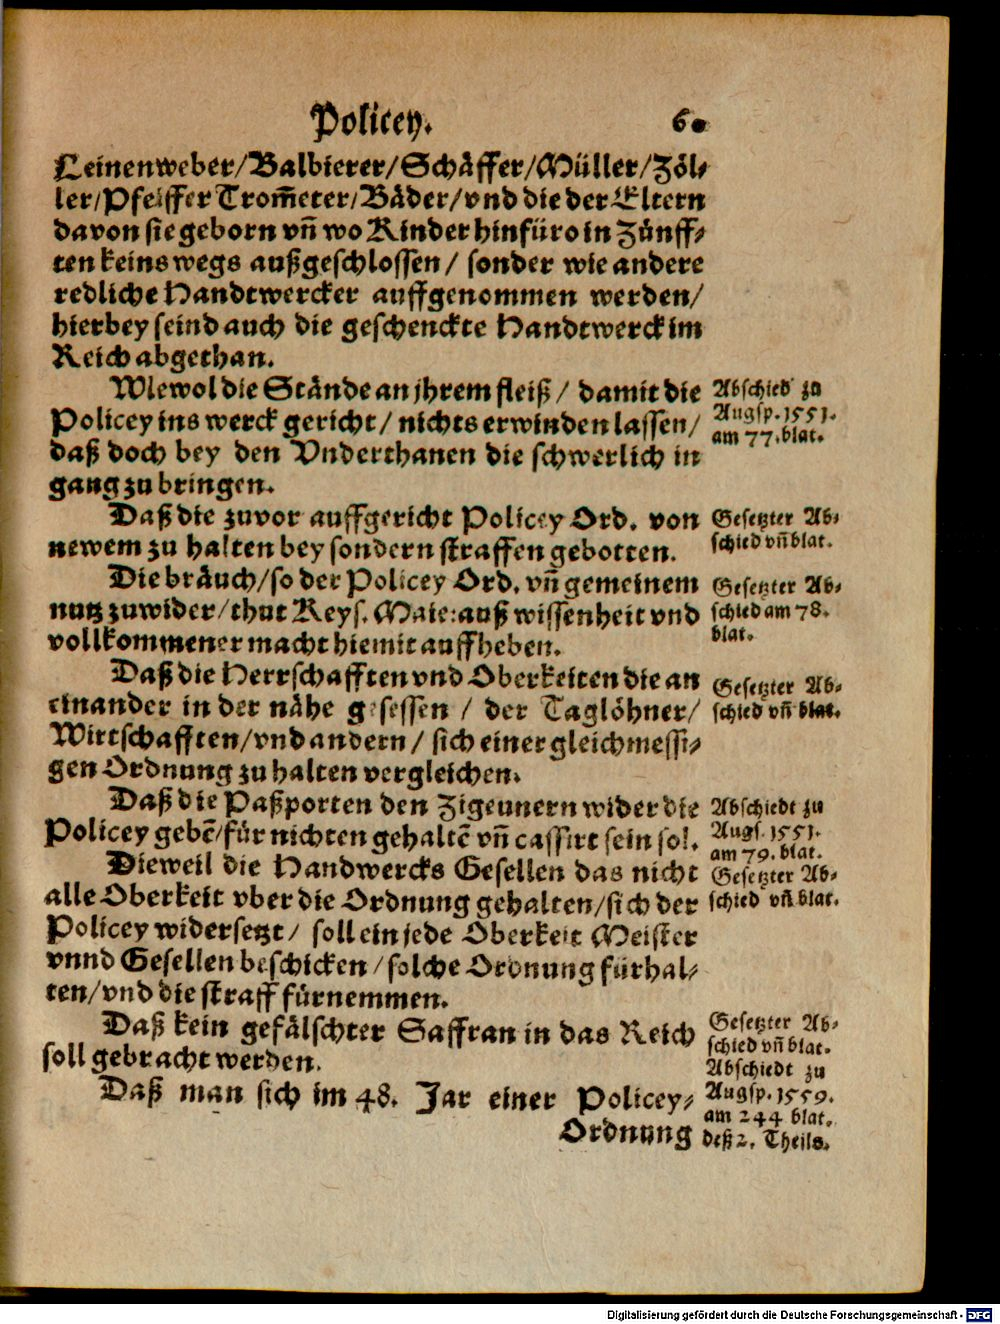 Policey. 60
Leinenweber/Balbierer/Schäffer/Müller/Zöl-
ler/Pfeiffer Trom̄eter/Bäder/vnd die der Eltern
davon sie geborn vn̄ wo Kinder hinfüro in Zünff-
ten keins wegs außgeschlossen/ sonder wie andere
redliche Handtwercker auffgenommen werden/
hierbey seind auch die geschenckte Handtwerck im
Reich abgethan.
Wiewol die Stände an jhrem fleiß/ damit die
Policey ins werck gericht/ nichts erwinden lassen/
daß doch bey den Vnderthanen die schwerlich in
gang zu bringen.
Abschied zu
Augsp. 1551.
am 77. blat.
Daß die zuvor auffgericht Policey Ord. von
newem zu halten bey sondern straffen gebotten.
Gesetzter Ab-
schied vn̄ blat.
Die bräuch/so der Policey Ord. vn̄ gemeinem
nutz zuwider/thut Keys. Maie: auß wissenheit vnd
vollkommener macht hiemit auffheben.
Gesetzter Ab-
schied am 78.
blat.
Daß die Herrschafften vnd Oberkeiten die an
einander in der nähe gesessen/ der Taglöhner/
Wirtschafften/vnd andern/ sich einer gleichmessi-
gen Ordnung zu halten vergleichen.
Gesetzter Ab-
schied vn̄ blat.
Daß die Paßporten den Zigeunern wider die
Policey gebē/für nichten gehaltē vn̄ cassirt sein sol.
Abschiedt zu
Augs. 1551.
am 79. blat.
Dieweil die Handwercks Gesellen das nicht
alle Oberkeit vber die Ordnung gehalten/sich der
Policey widersetzt/ soll ein jede Oberkeit Meister
vnnd Gesellen beschicken/solche Ordnung fürhal-
ten/vnd die straff fürnemmen.
Gesetzter Ab-
schied vn̄ blat.
Daß kein gefälschter Saffran in das Reich
soll gebracht werden.
Gesetzter Ab-
schied vn̄ blat.
Daß man sich im 48. Jar einer Policey-
Ordnung
Abschiedt zu
Augsp. 1559.
am 244 blat.
deß 2. Theils.
Digitalisierung gefördert durch die Deutsche Forschungsgemeinschaft - DFG